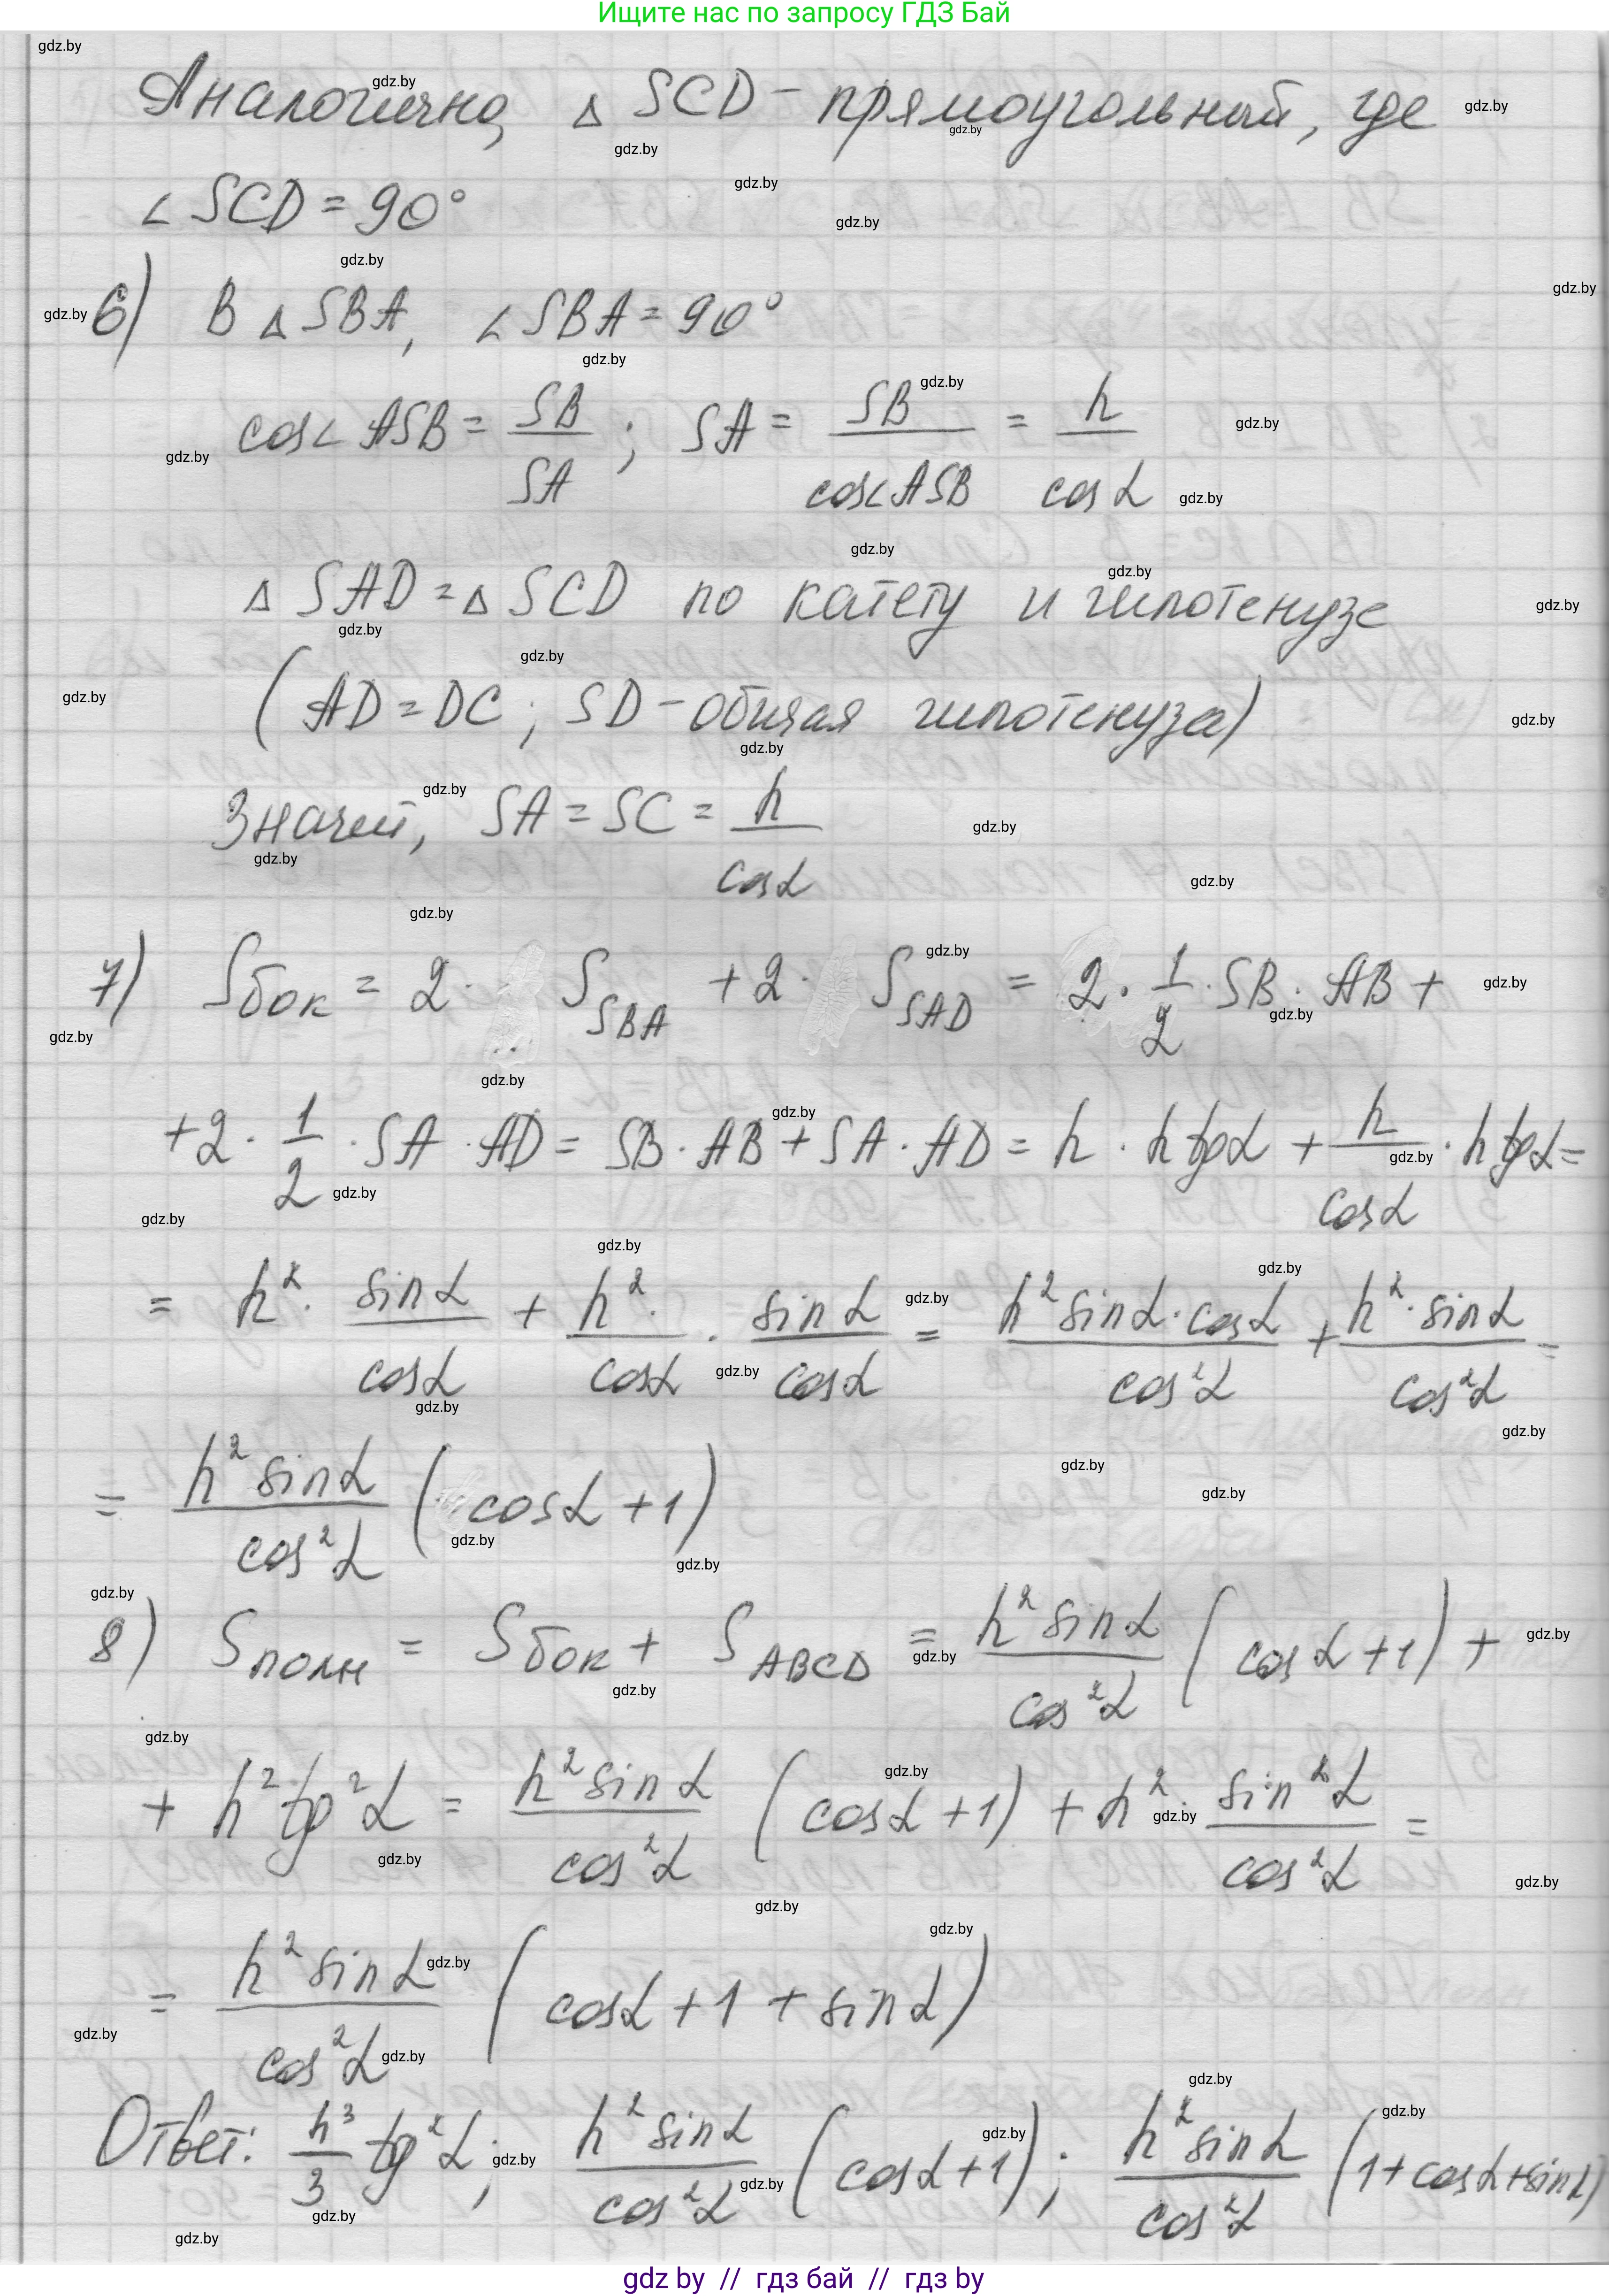 Ищите нас по запросу ГДЗ Бай
Аналогично, △ SCD - прямоугольный, где
∠ SCD = 90°
6) В △ SBA, ∠ SBA = 90°
cos∠ ASB = SB/SA ; SA = SB/cos∠ASB = h/cos α
△ SAD = △ SCD по катету и гипотенузе
( AD = DC ; SD - общая гипотенуза)
Значит, SA = SC = h/cos α
7) Sбок = 2 · S SBA + 2 · S SAD = 2 · 1/2 · SB · AB +
+ 2 · 1/2 · SA · AD = SB · AB + SA · AD = h · h tg α + h/cos α · h tg α =
= h² · sin α/cos α + h² ·/cos α · sin α/cos α = h² sin α · cos α/cos² α + h² · sin α/cos² α =
= h² sin α/cos² α ( cos α + 1 )
8) Sполн = Sбок + S ABCD = h² sin α/cos² α ( cos α + 1 ) +
+ h² tg² α = h² sin α/cos² α ( cos α + 1 ) + h² · sin² α/cos² α =
= h² sin α/cos² α ( cos α + 1 + sin α )
Ответ: h³/3 tg² α ; h² sin α/cos² α ( cos α + 1 ) ; h² sin α/cos² α ( 1 + cos α + sin α )
gdz by // гдз бай // гдз by